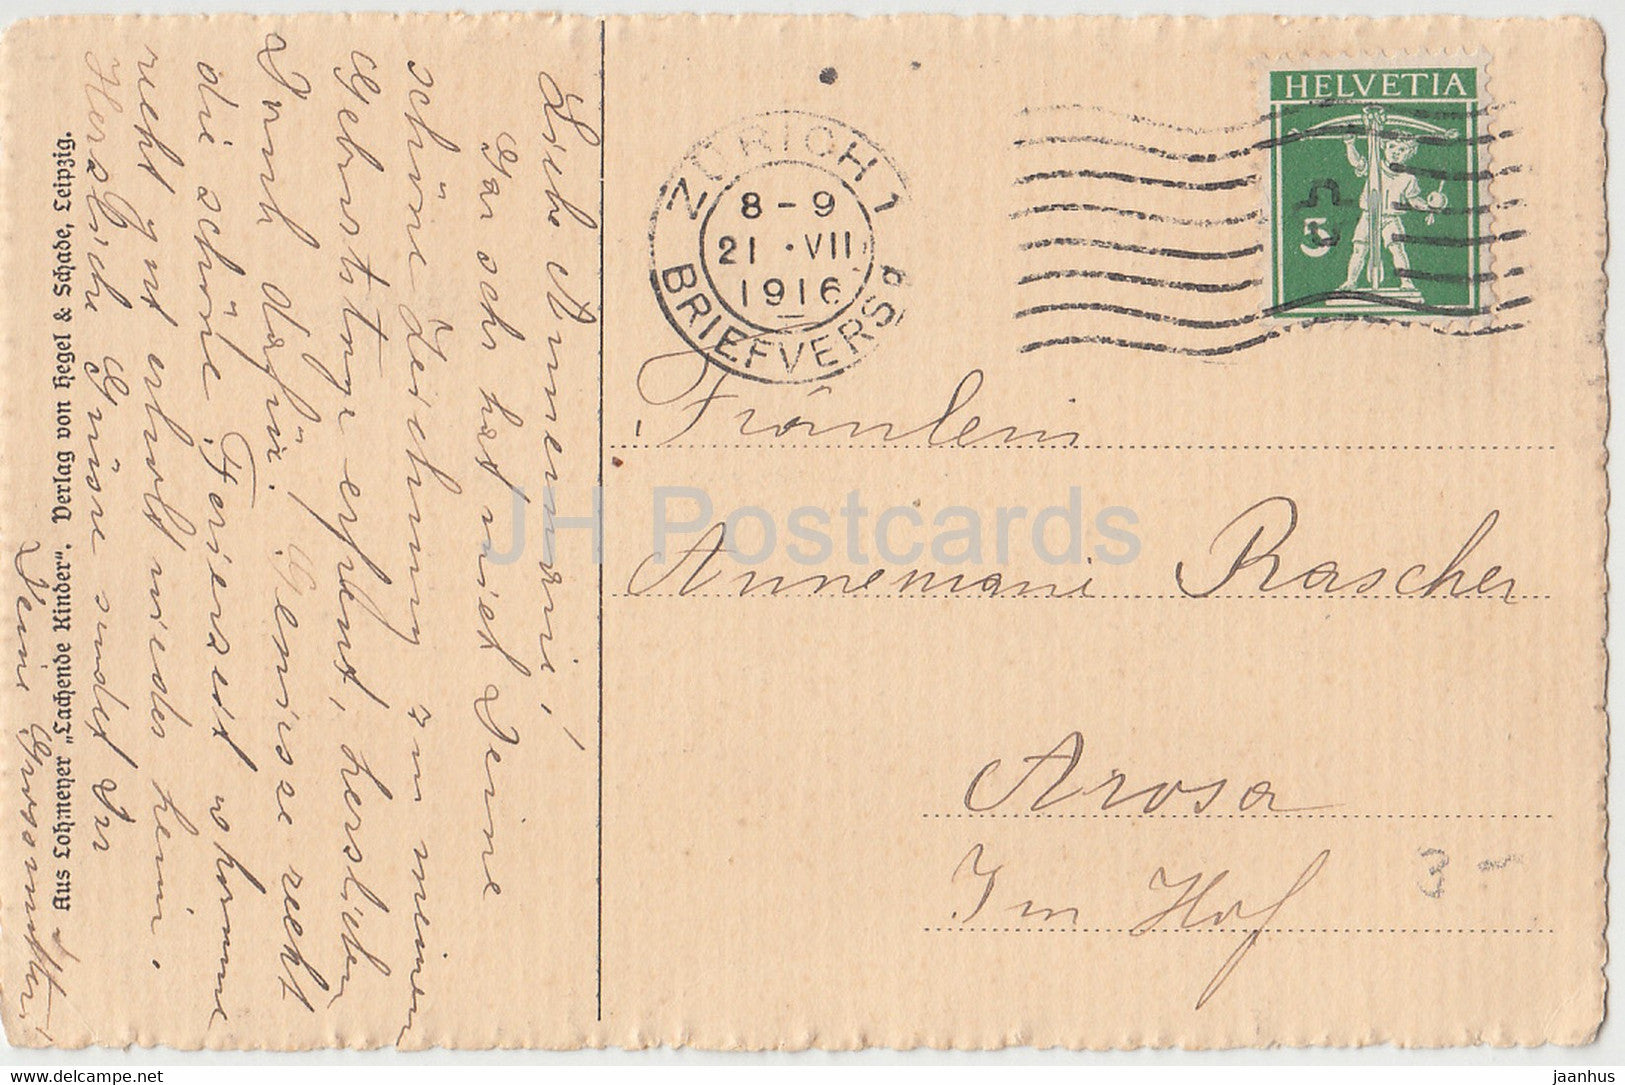 Liebe Annemarie!
Gar sehr hat mich Deine
schöne Zeichnung zu meinem
Geburtstage erfreut, herzlichen
Dank dafür. Geniesse recht
die schöne Ferienzeit u komme
recht gut erholt wieder heim.
Herzliche Grüsse sendet Dir
Deine Grossmutter.
Aus Lohmeyer „Lachende Kinder“. Verlag von Hegel & Schade, Leipzig.
ZÜRICH 1
8-9
21.VII
1916
BRIEFVERSD
HELVETIA
5
Fräulein
Annemarie Rascher
Arosa
Im Hof
3 -
JH Postcards
hippostcard.com
jaanhus